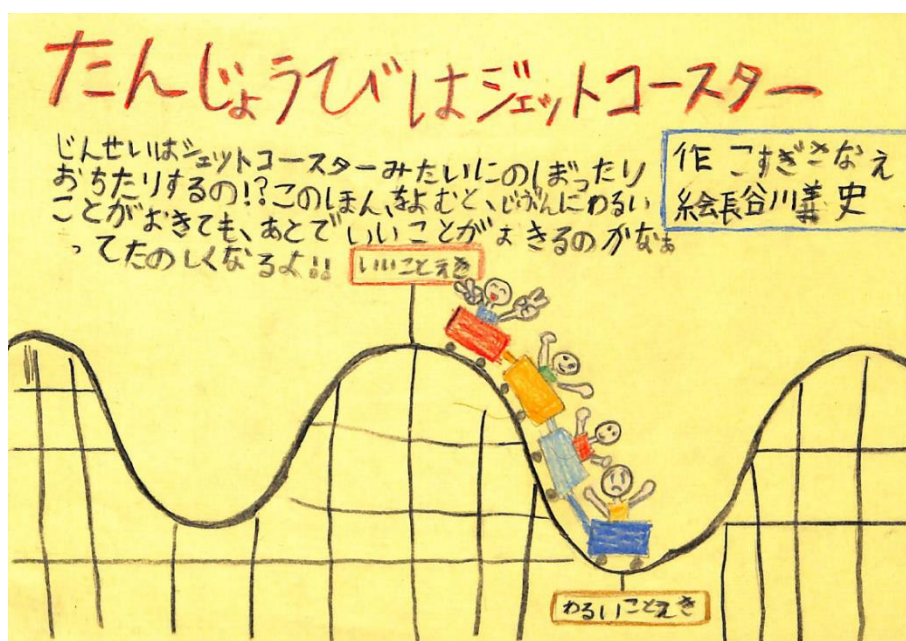 たんじょうびはジェットコースター
じんせいはジェットコースターみたいにのぼったり
おちたりするの!?このほんをよむと、じぶんにわるい
ことがおきても、あとでいいことがおきるのかなぁ
ってたのしくなるよ!!
作 こすぎさなえ
絵長谷川義史
いいことえき
わるいことえき